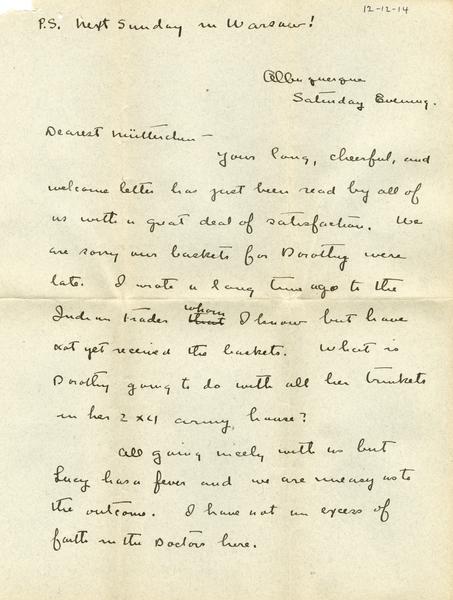 12-12-14
P.S. Next Sunday in Warsaw!
Albuquerque
Saturday Evening.
Dearest Mütterchen —
Your long, cheerful, and
welcome letter has just been read by all of
us with a great deal of satisfaction. We
are sorry our baskets for Dorothy were
late. I wrote a long time ago to the
Indian trader whom I know but have
not yet received the baskets. What is
Dorothy going to do with all her trinkets
in her 2 x 4 army house?
All going nicely with us but
Lucy has a fever and we are uneasy as to
the outcome. I have not an excess of
faith in the Doctors here.